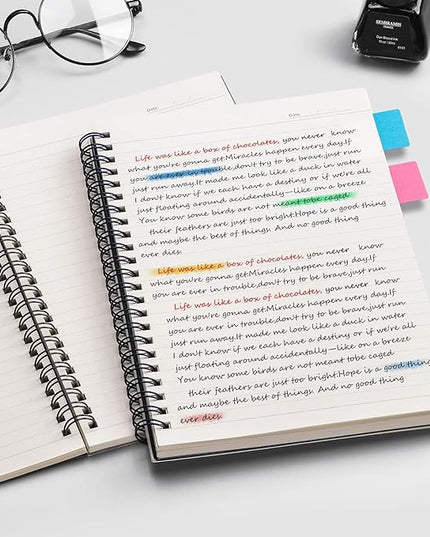 SEMIRAMIS
Date
Date
Life was like a box of chocolates, you never know
what you're gonna get.Miracles happen every day.If
you are ever in trouble,don't try to be brave,just run
just run away.It made me look like a duck in water
I don't know if we each have a destiny or if we're all
just floating around accidentally—like on a breeze
You know some birds are not meant tobe caged
their feathers are just too bright.Hope is a good thing
and maybe the best of things. And no good thing
ever dies.
Life was like a box of chocolates, you never know
what you're gonna get.Miracles happen every day.If
you are ever in trouble,don't try to be brave,just run
Life was like a box of chocolates, you never know
what you're gonna get.Miracles happen every day.If
you are ever in trouble,don't try to be brave,just run
just run away.It made me look like a duck in water
I don't know if we each have a destiny or if we're all
just floating around accidentally—like on a breeze
You know some birds are not meant tobe caged
their feathers are just too bright.Hope is a good thing
and maybe the best of things. And no good thing
ever dies.